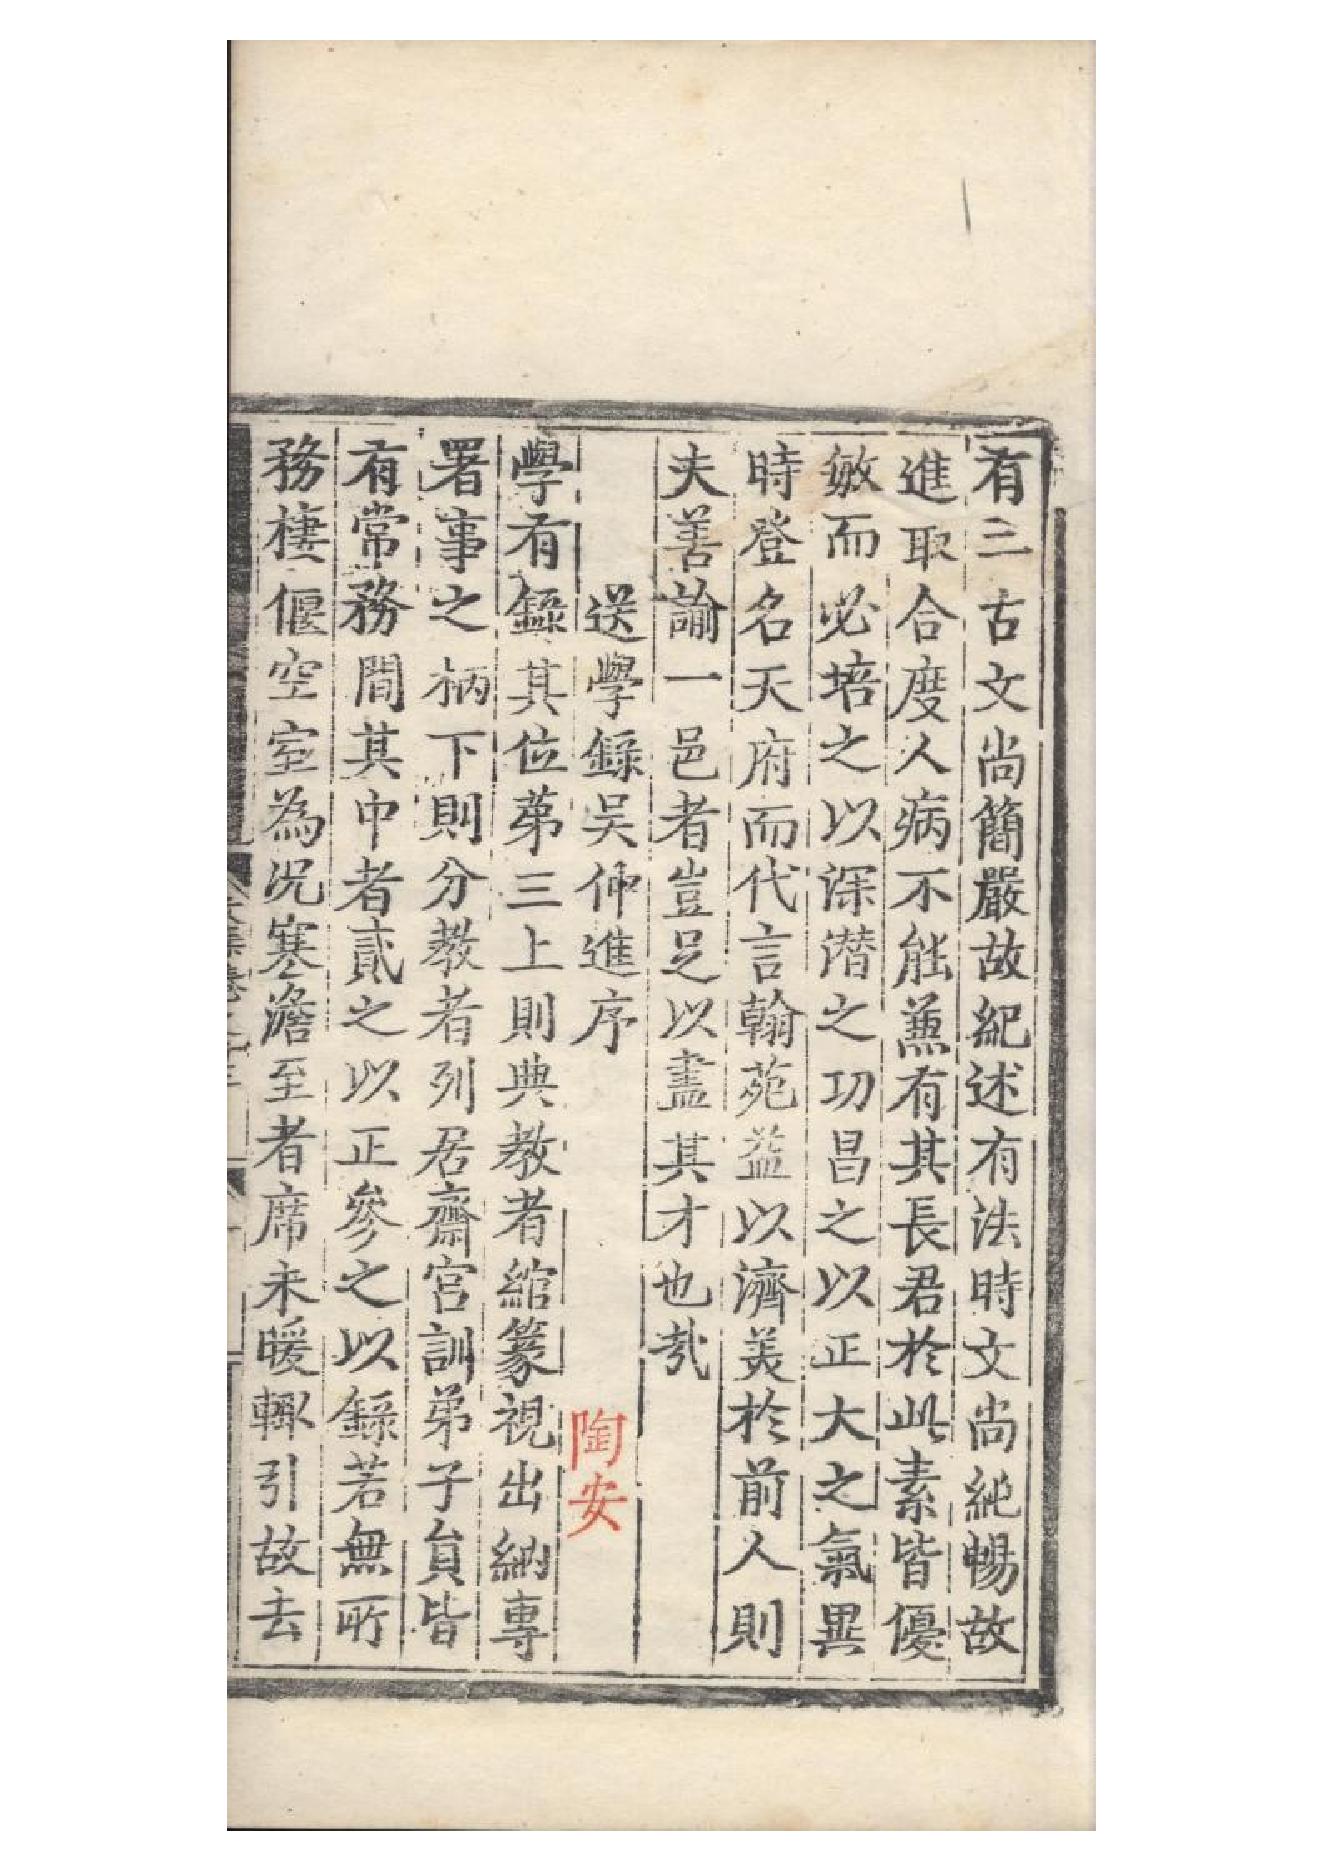 有二古文尚簡嚴故紀述有法時文尚純暢故
進取合度人病不能兼有其長君於此素皆優
敏而必培之以深潛之功昌之以正大之氣異
時登名天府而代言翰苑益以濟美於前人則
夫善諭一邑者豈足以盡其才也哉
送學錄吴仲進序
陶安
學有錄其位苐三上則典教者綰篆視出納專
署事之柄下則分教者列居齋宫訓苐子員皆
有常務間其中者貳之以正參之以錄若無所
務棲偃空室為况寒澹至者席未暖輙引故去